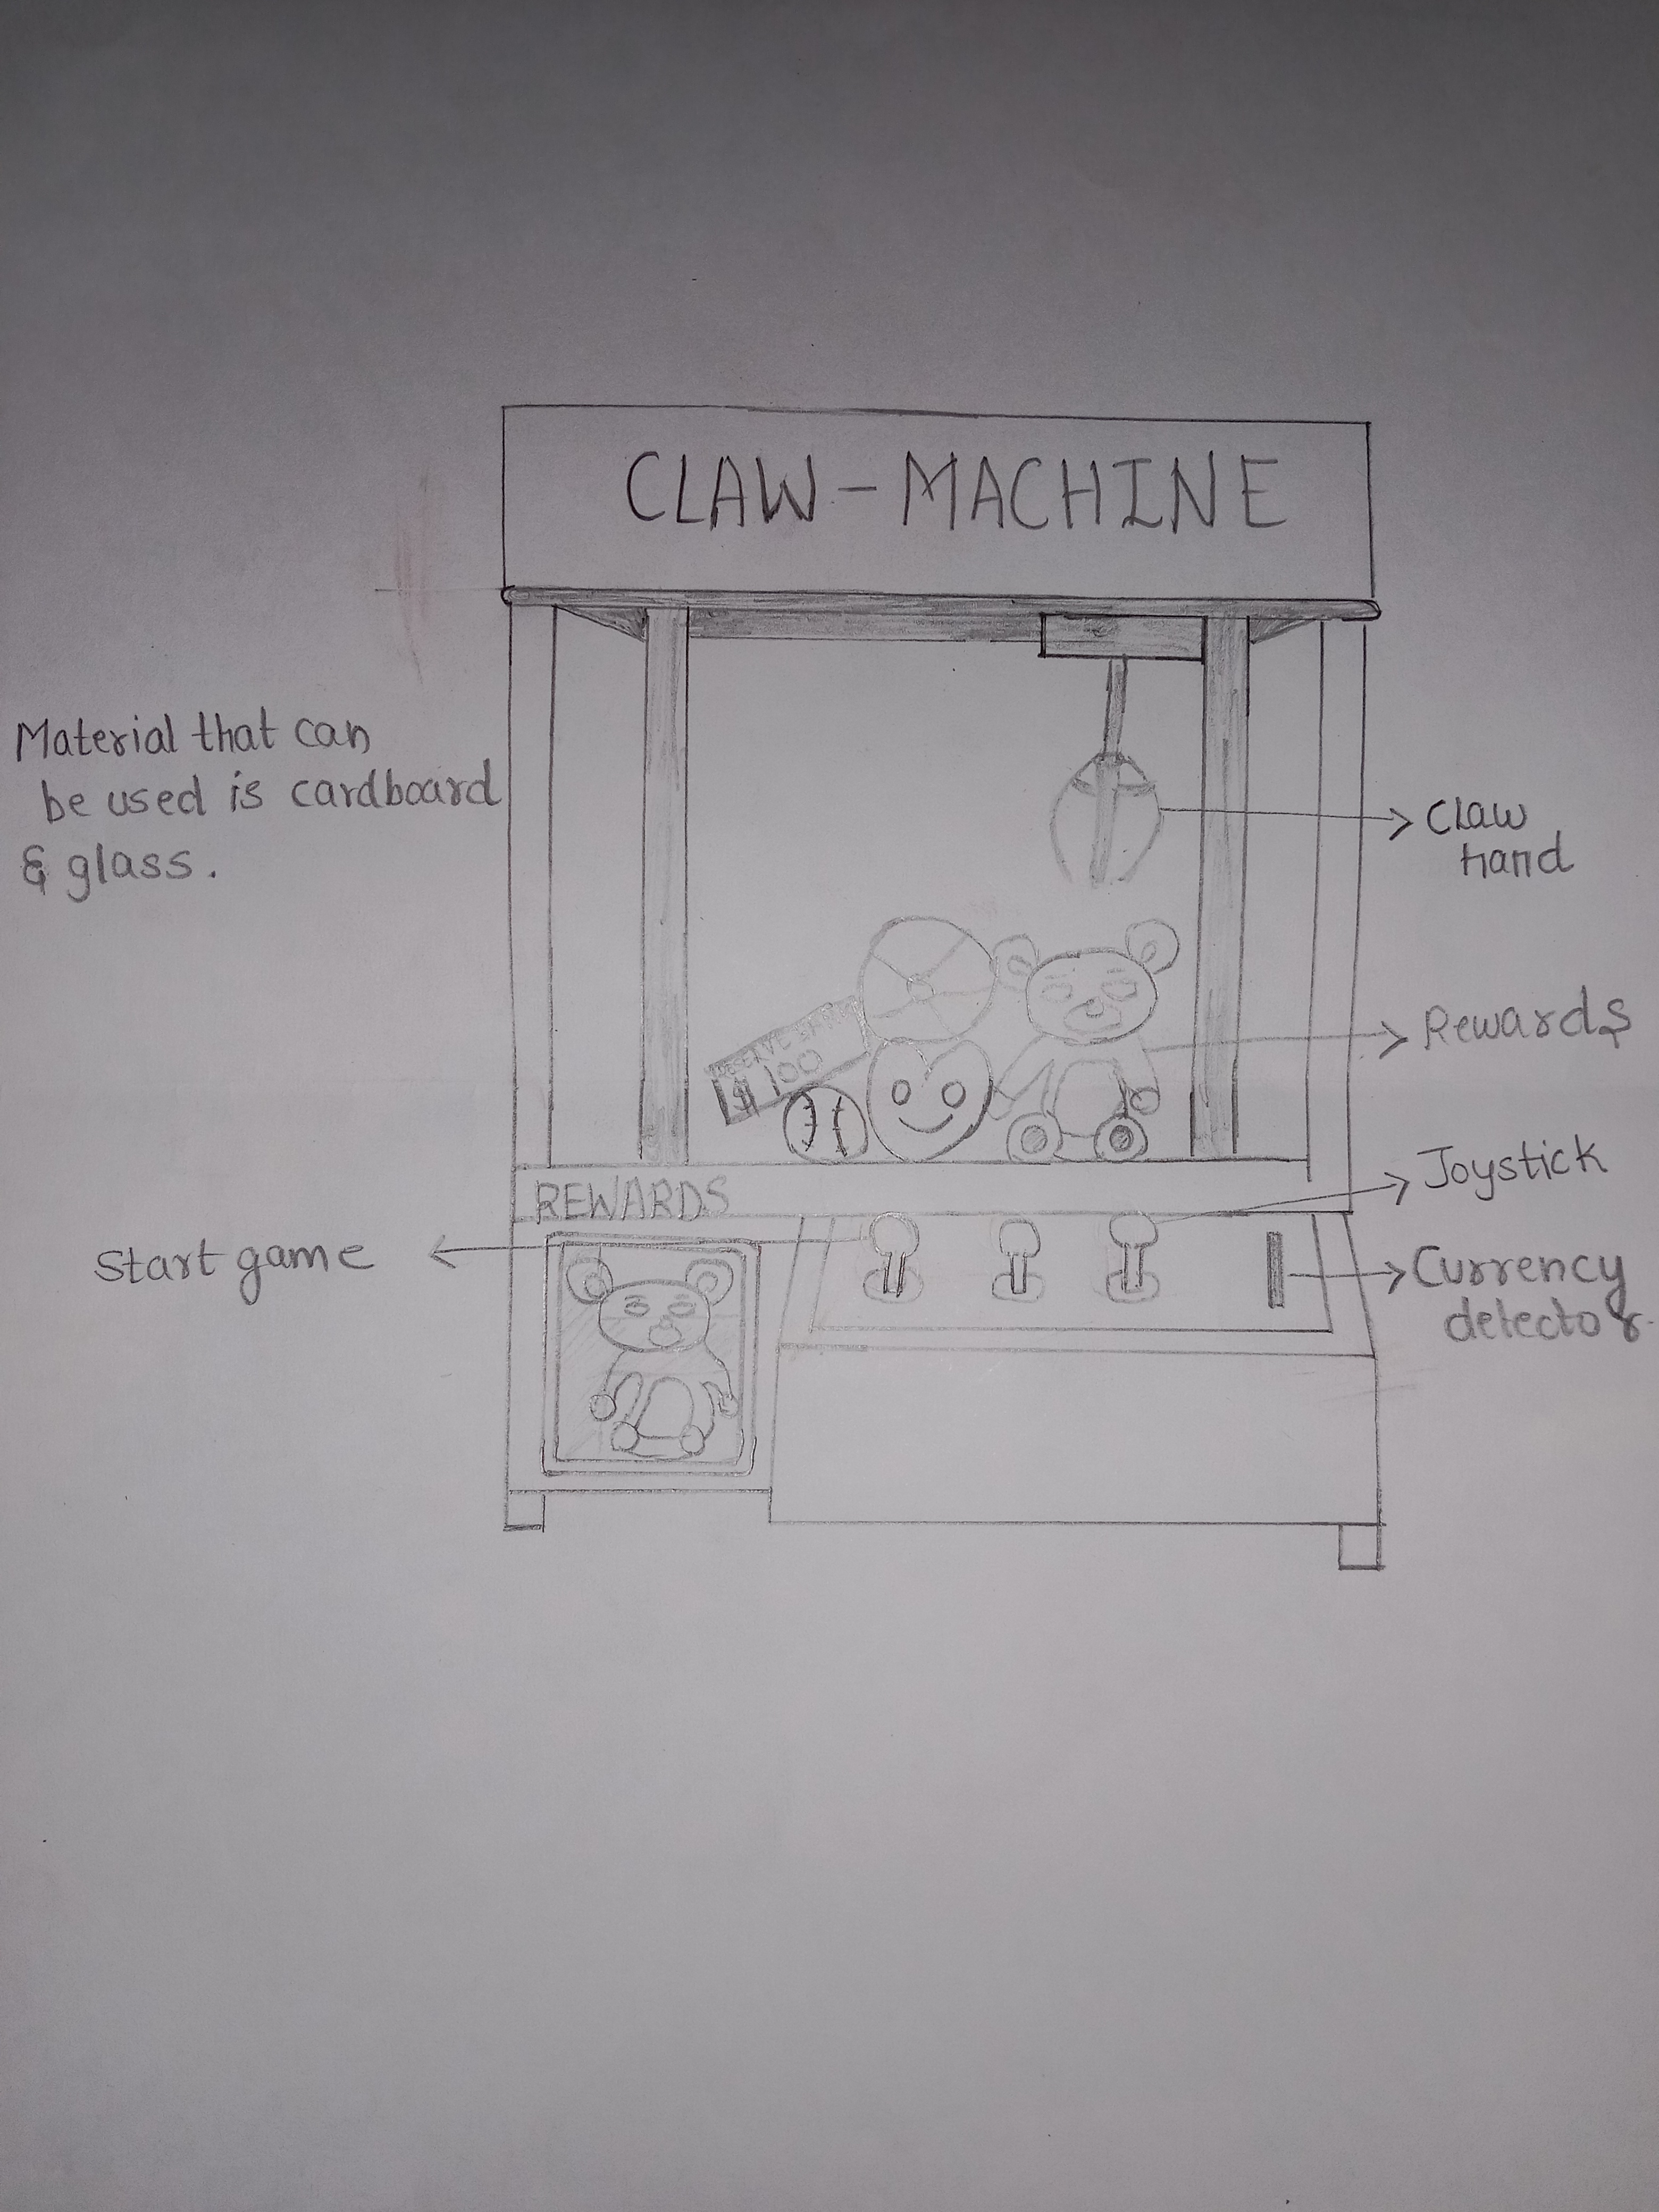 CLAW-MACHINE
Material that can
be used is cardboard
& glass.
Claw
hand
Rewards
$100
Joystick
REWARDS
Start game
Currency
detector